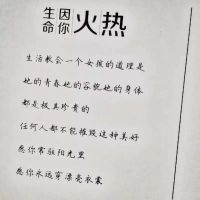 生命因你火热
生活教会一个女孩的道理是
她的青春她的容貌她的身体
都是极其珍贵的
任何人都不能摧毁这种美好
愿你常驻阳光里
愿你永远穿漂亮衣裳